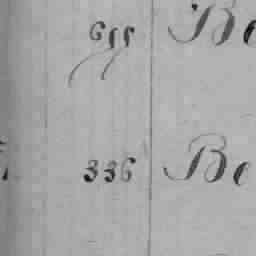 655 Be
336 Be